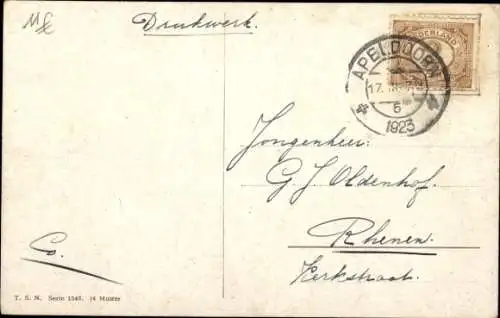 Drukwerk.
NEDERLAND
APELDOORN
17.
6
1923
Jongenheer
G. J. Oldenhof.
Rhenen.
Kerkstraat.
T. S. N. Serie 1545. 14 Muster